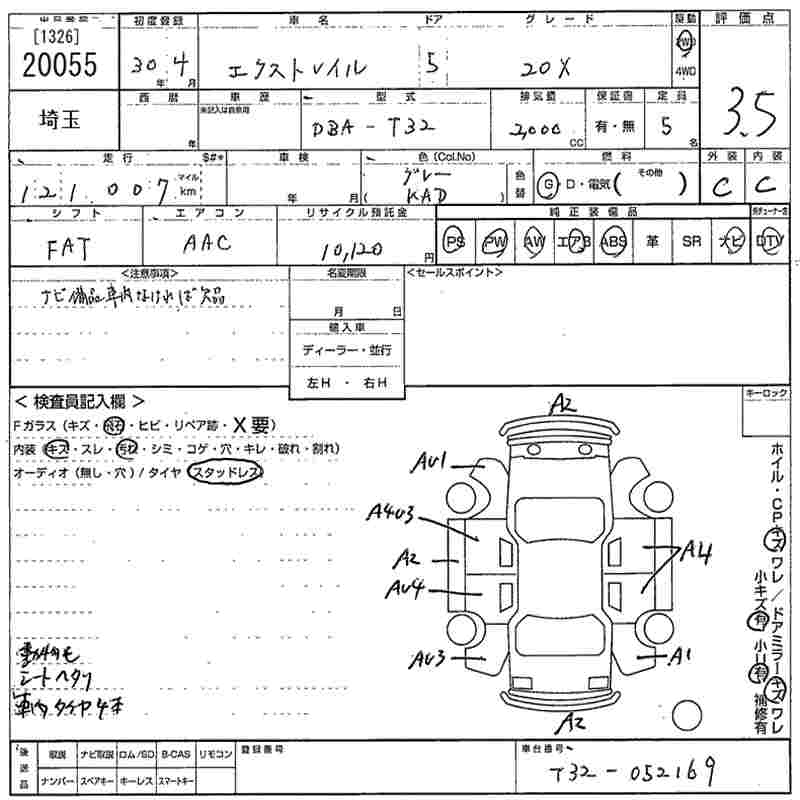 出品番号 初度登録 車名 ドア グレード 駆動 評価点
[1326]
20055 30年 4月 エクストレイル 5 20X 2WD 4WD 3.5
埼玉 西暦 年 車歴 型式 排気量 保証書 定員
未記入は自家用
DBA-T32 2,000cc 有・無 5名
走行 車検 色(Col.No) 燃料 外装 内装
121,007 マイル km 年 月 グレー (KAD) 色替 G・D・電気( その他 ) C C
シフト エアコン リサイクル預託金 純正装備品
FAT AAC 10,120円 PS PW AW エアB ABS 革 SR ナビ DTV
<注意事項> 名変期限 <セールスポイント>
ナビ備品車内なければ欠品
月 日
輸入車
ディーラー・並行
左H ・ 右H
<検査員記入欄> キーロック
Fガラス(キズ・飛石・ヒビ・リペア跡・X要)
内装(キズ・スレ・汚れ・シミ・コゲ・穴・キレ・破れ・割れ)
オーディオ(無し・穴)/タイヤ(スタッドレス)
A2
AU1
A4U3
A2
AU4
A4
AU3
A1
A2
ホイル・CPキズワレ/ドアミラーキズワレ
小キズ有 小U有 補修有
シートヘタリ
車内タイヤ4本
後送品 取説 ナビ取説 ロム/SD B-CAS リモコン 登録番号 車台番号
ナンバー スペアキー ホーレス スマートキー
T32-052169